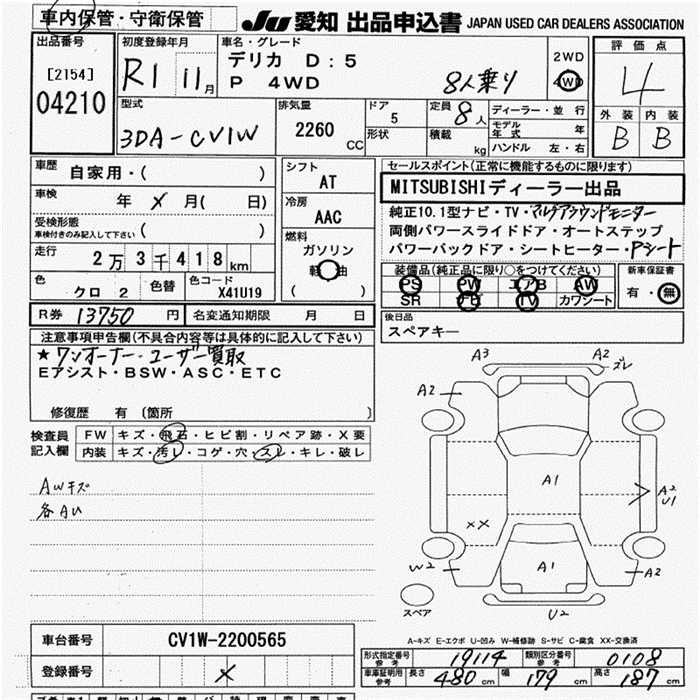 車内保管・守衛保管
JU 愛知 出品申込書 JAPAN USED CAR DEALERS ASSOCIATION
出品番号
[2154]
04210
初度登録年月
R1 11月
車名・グレード
デリカ D:5
P 4WD
8人乗り
2WD
4WD
評価点
4
外装 内装
B B
型式
3DA-CV1W
排気量
2260 CC
ドア
5
形状
定員
8人
積載
kg
ディーラー・並行
モデル年式 年
ハンドル 左・右
車歴
自家用・( )
車検
年 × 月( 日)
受検形態
車検付きのみ記入して下さい ( )
走行
2万3千418km
色
クロ2
色替
色コード
X41U19
シフト
AT
冷房
AAC
燃料
ガソリン
軽油
( )
セールスポイント(正常に機能するものに限ります)
MITSUBISHIディーラー出品
純正10.1型ナビ・TV・マルチアラウンドモニター
両側パワースライドドア・オートステップ
パワーバックドア・シートヒーター・Pシート
装備品(純正品に限り○をつけてください)
PS PW エアB AW
SR ナビ TV カワシート
新車保証書
有・無
R券 13750 円
名変通知期限 月 日
後日品
スペアキー
注意事項申告欄(不具合内容等は具体的に記入して下さい)
★ワンオーナー・ユーザー買取
Eアシスト・BSW・ASC・ETC
修復歴 有 〔箇所 〕
検査員記入欄
FW キズ・飛石・ヒビ割・リペア跡・X要
内装 キズ・汚レ・コゲ・穴・スレ・キレ・破レ
AWキズ
各AU
A3 A2 ズレ
A2
A1
A2
U1
XX
W2 A1 A2
スペア
U2
A-キズ E-エクボ U-凹み W-補修跡 S-サビ C-腐食 XX-交換済
車台番号 CV1W-2200565
登録番号 ×
形式指定番号 参考 19114 類別区分番号 参考 0108
車庫証明用 参考 長さ 480cm 幅 179cm 高さ 187cm